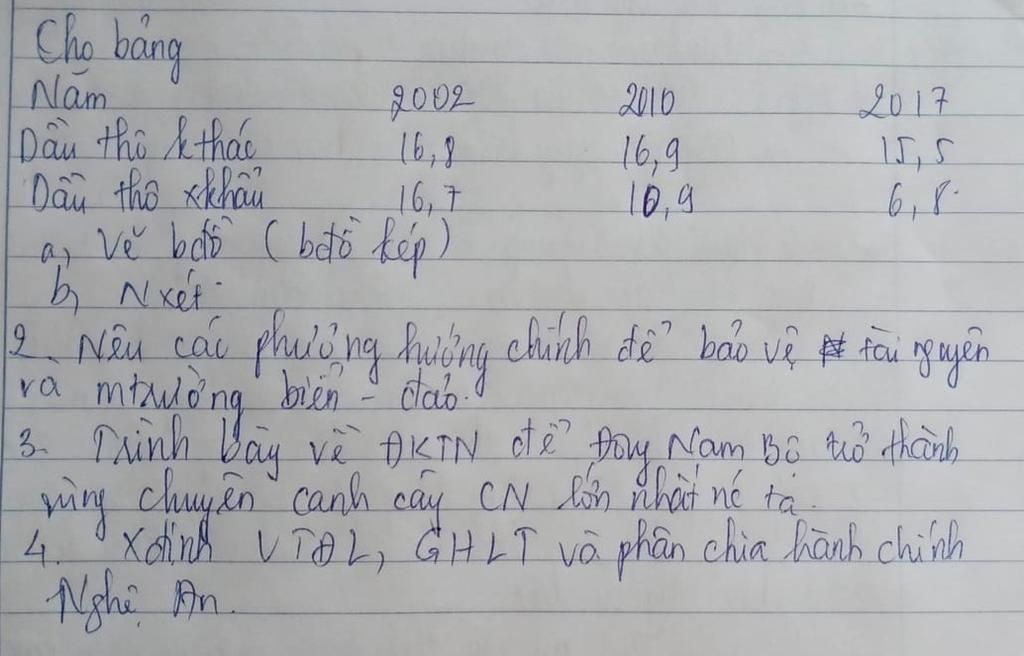 Cho bảng
Năm 2002 2010 2017
Dầu thô kthác 16,8 16,9 15,5
Dầu thô xkhẩu 16,7 10,9 6,8.
a, Vẽ bđồ (bđồ kép)
b, Nxét.
2. Nêu các phương hướng chính để bảo vệ tài nguyên
và mtrường biển - đảo.
3. Trình bày về ĐKTN để Đông Nam Bộ trở thành
vùng chuyên canh cây CN lớn nhất nc ta.
4. Xđịnh VTĐL, GHLT và phân chia hành chính
Nghệ An.